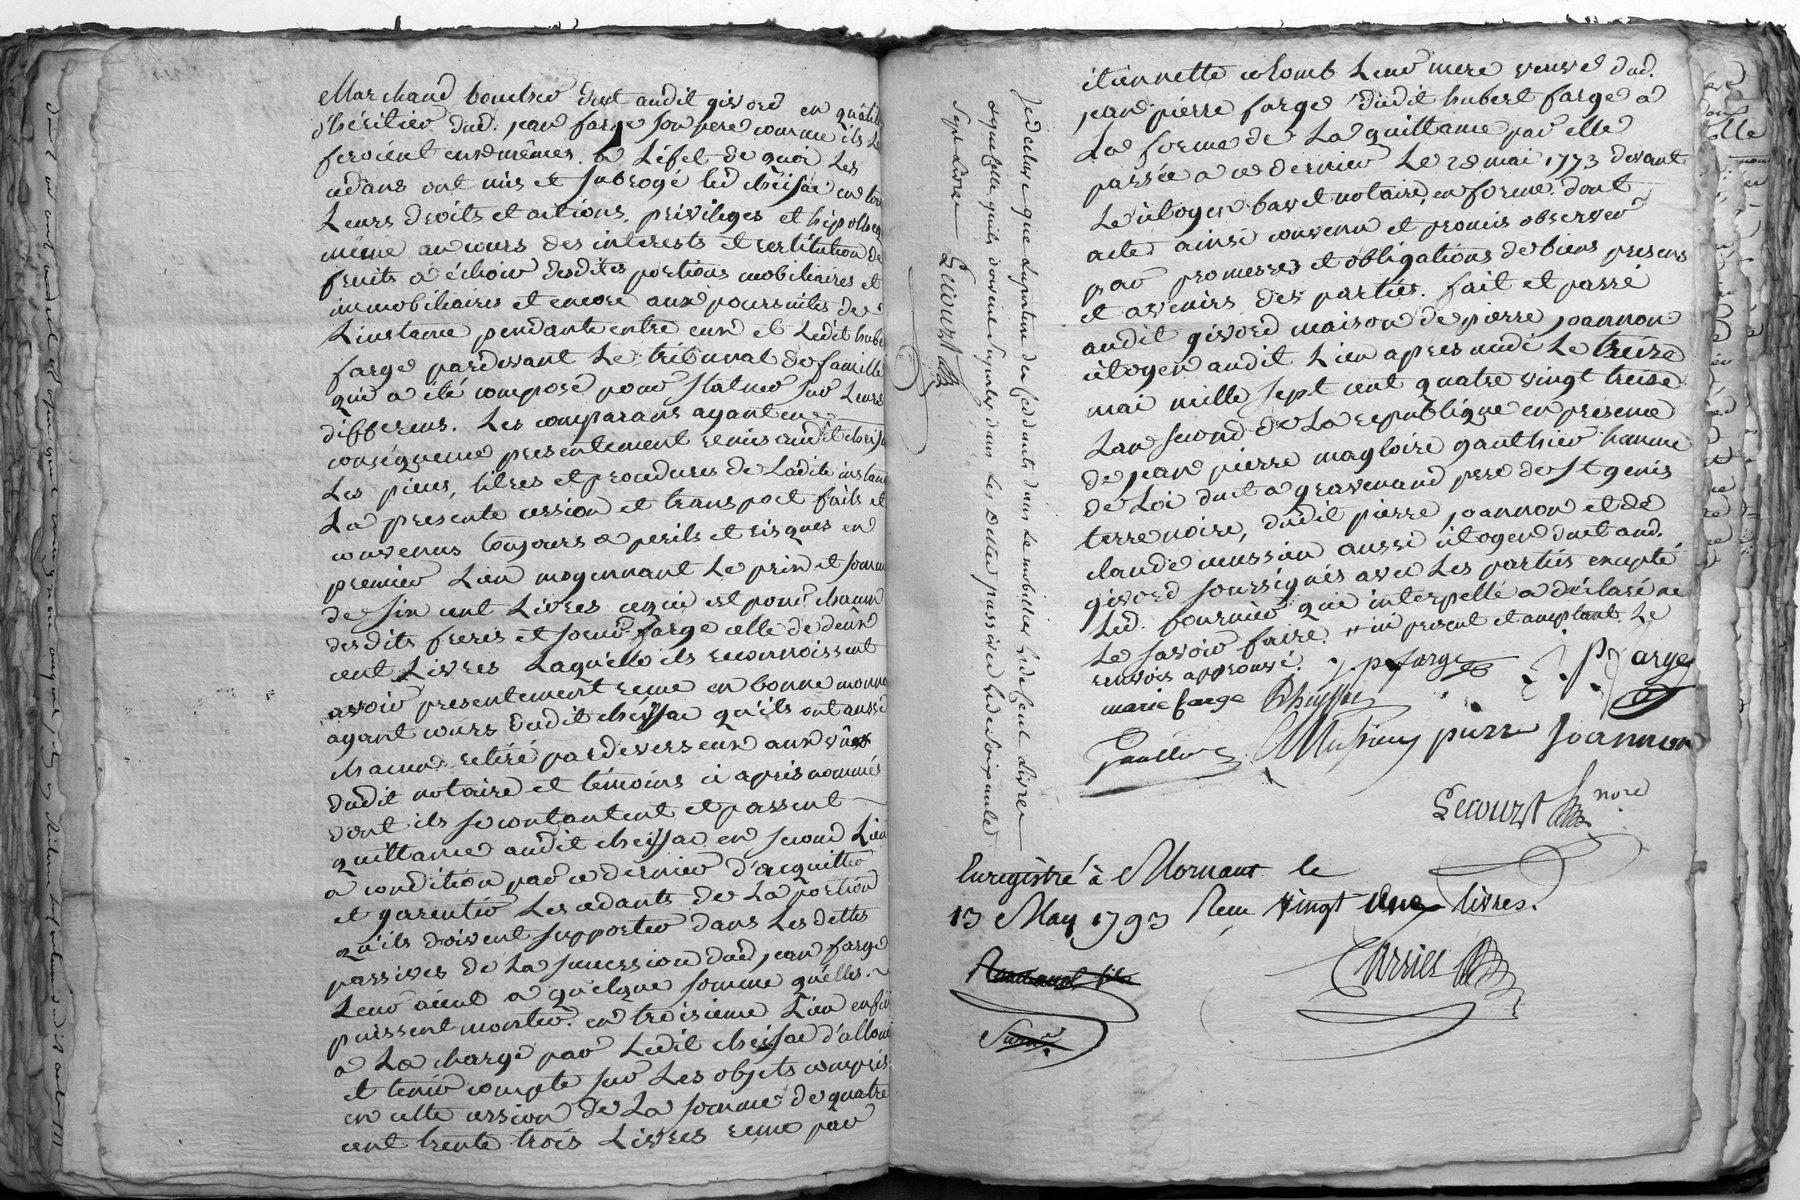 Marchand boucher dud audit givord en qualité
d'héritier dud. jean farge son pere comme ils le
feroient eux memes. à L'éfet de quoi Les
cedans ont mis et subrogé led cheissac en tous
Leurs droits et actions, privileges et hipotheq
même au cours des interests et restitution de
fruits à échoir desdites portions mobiliaires et
immobiliaires et encore aux poursuites de
L'instance pendante entre eux et Ledit hubert
farge pardevant Le tribunal de famille
qui a été composé pour statuer sur Leurs
differens. Les comparans ayant en
conséquence presentement remis audit cheissac
Les pieces, titres et procedures de Ladite instance
La presente cession et transport faits et
convenus toujours à perils et risques en
premier Lieu moyennant Le prix et somme
de six cent Livres ce qui est pour chacun
desdits freres et soeur farge celle de deux
cent Livres Laquelle ils reconnoissent
avoir presentement reçue en bonne monnoye
ayant cours dudit cheissac qu'ils ont aussi
chacun retiré pardevers eux aux vües
dudit notaire et témoins ci après nommés
dont ils se contantent et passent
quittance audit cheissac en second Lieu
à condition par ce dernier d'acquitter
et garentir Les cedants de La portion
qu'ils doivent supporter dans Les dettes
passives de La succession dud jean farge
Leur aieul à quelque somme qu'elles
puissent monter. en troisieme Lieu enfin
à La charge par Ledit cheissac d'allouer
et tenir compte sur Les objets compris
en cette cession de La somme de quatre
cent trente trois Livres reçue par
Je declare que la portion des cedants dans le mobillier est de cent Livres
et que celle qu'ils doivent suporter dans les dettes passives est de cinquante
sept Livres Lecourt
étiennette colomb Leur mere veuve dud.
jean pierre farge dudit hubert farge à
La forme de La quittance par elle
passée à ce dernier Le 28 mai 1773 devant
Le citoyen bavet notaire, en forme. dont
acte ainsi convenu et promis observer
par promesses et obligations de biens presens
et avenirs des parties. fait et passé
audit givord maison de pierre joannon
citoyen audit Lieu apres midi Le treize
mai mille sept cent quatre vingt treize
L'an second de La republique en presence
de jean pierre magloire gauthier homme
de Loi dud à gravenand pere de st genis
terre noire, dudit pierre joannon et de
claude mussieu aussi citoyen dud aud.
givord soussignés avec Les parties excepté
Led. fournier qui interpellé a déclaré ne
Le savoir faire. # ici present et acceptant. Le
renvoi approuvé. j. p. farge P. farge
marie farge Cheyssac
Gauthier Mussieu pierre Joannon
Lecourt nore
Enregistré à Mornant le
13 May 1793 Reçu vingt une livres.
Carriés